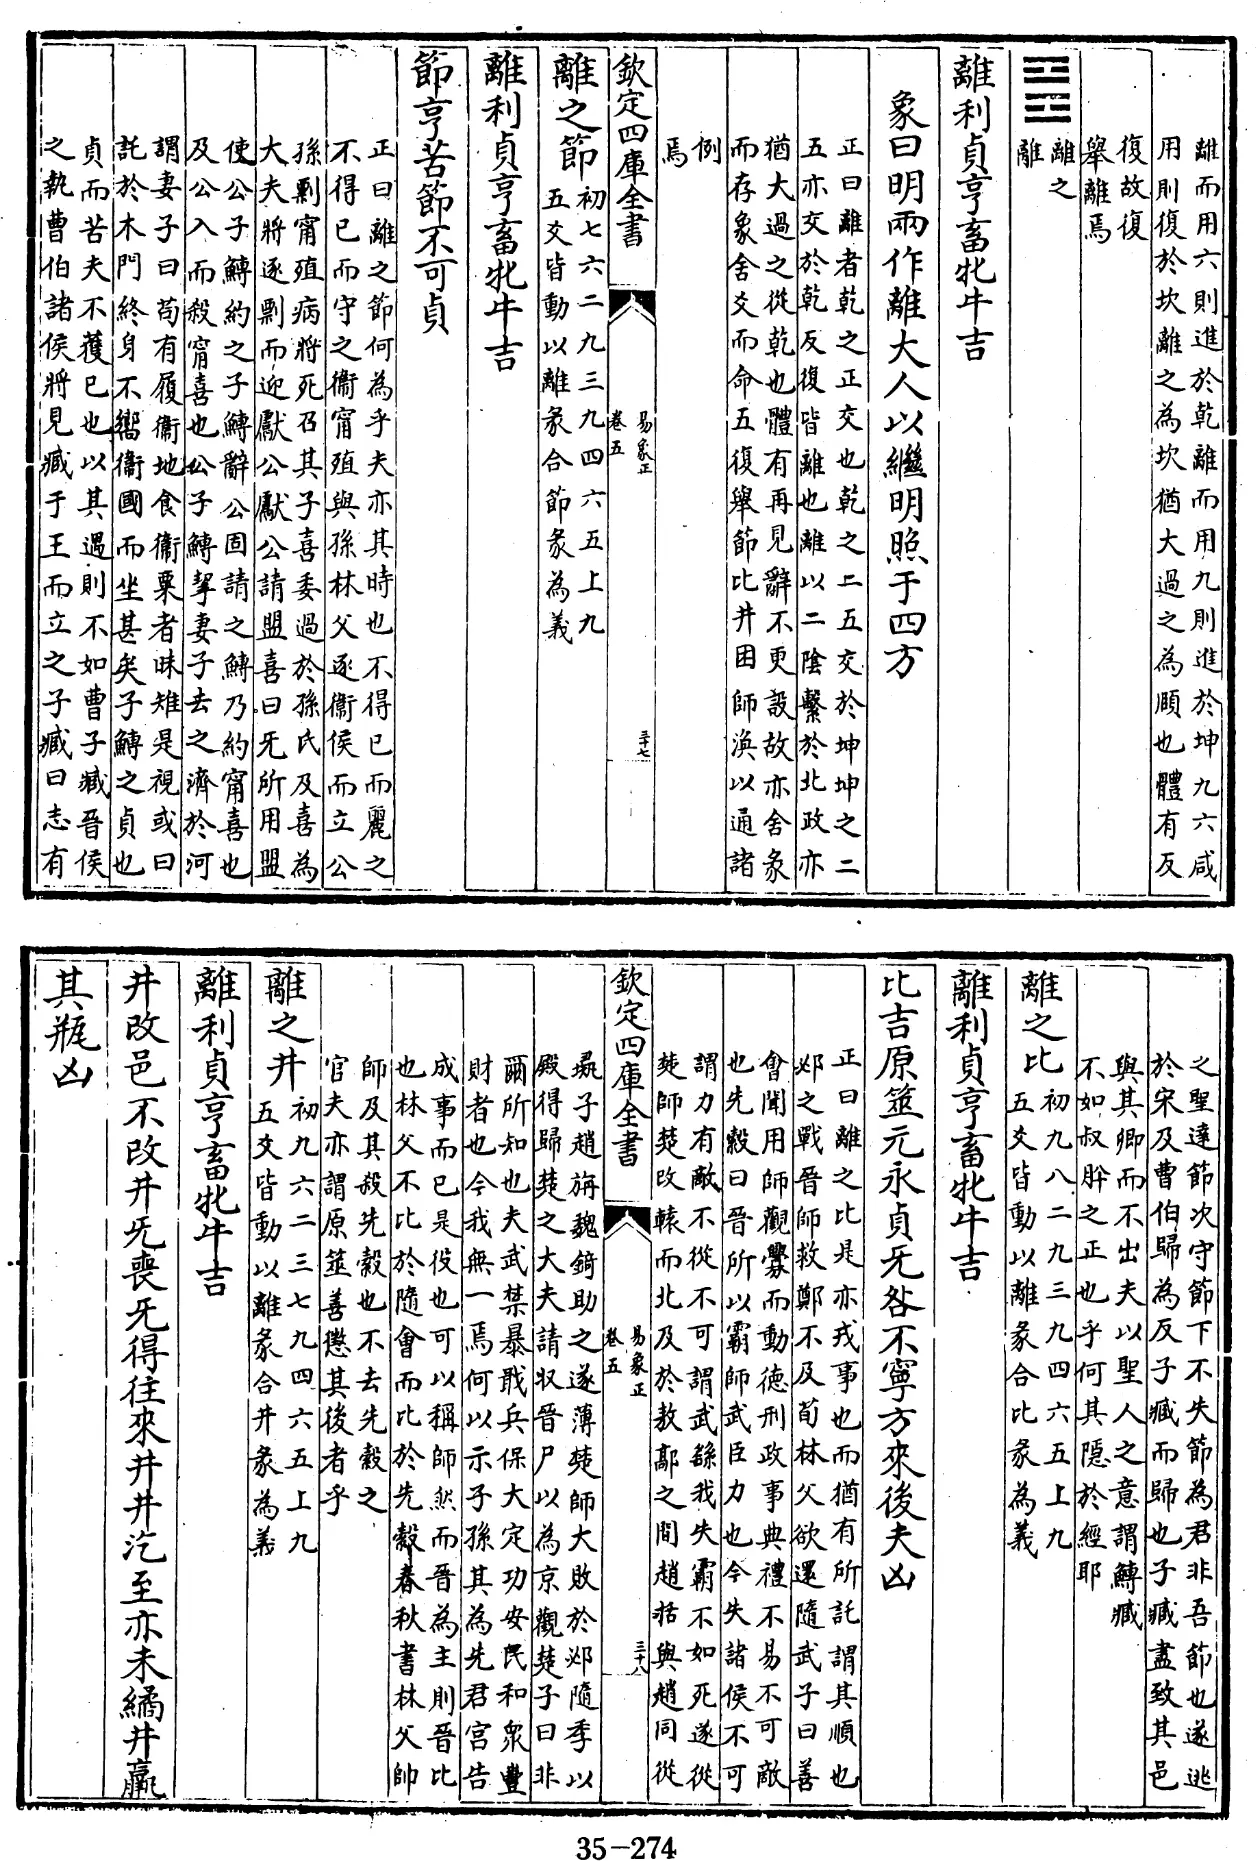 離而用六則進於乾離而用九則進於坤九六咸
用則復於坎離之為坎猶大過之為頤也體有反
復故復
舉離焉
離之
離
離利貞亨畜牝牛吉
象曰明兩作離大人以繼明照于四方
正曰離者乾之正交也乾之二五交於坤坤之二
五亦交於乾反復皆離也離以二陰繫於北政亦
猶大過之從乾也體有再見辭不更設故亦舍彖
而存象舍爻而命五復舉節比井困師渙以通諸
例
焉
欽定四庫全書
易象正
卷五
三十七
離之節
初七六二九三九四六五上九
五爻皆動以離彖合節彖為義
離利貞亨畜牝牛吉
節亨苦節不可貞
正曰離之節何為乎夫亦其時也不得已而麗之
不得已而守之衞甯殖與孫林父逐衞侯而立公
孫剽甯殖病將死召其子喜委過於孫氏及喜為
大夫將逐剽而迎獻公獻公請盟喜曰无所用盟
使公子鱄約之子鱄辭公固請之鱄乃約甯喜也
及公入而殺甯喜也公子鱄挈妻子去之濟於河
謂妻子曰苟有履衞地食衞粟者昧雉是視或曰
託於木門終身不嚮衞國而坐甚矣子鱄之貞也
貞而苦夫不獲已也以其遇則不如曹子臧晉侯
之執曹伯諸侯將見臧于王而立之子臧曰志有
之聖達節次守節下不失節為君非吾節也遂逃
於宋及曹伯歸為反子臧而歸也子臧盡致其邑
與其卿而不出夫以聖人之意謂鱄臧
不如叔肸之正也乎何其隱於經耶
離之比
初九八二九三九四六五上九
五爻皆動以離彖合比彖為義
離利貞亨畜牝牛吉
比吉原筮元永貞无咎不寧方來後夫凶
正曰離之比是亦戎事也而猶有所託謂其順也
邲之戰晉師救鄭不及荀林父欲還隨武子曰善
會聞用師觀釁而動德刑政事典禮不易不可敵
也先縠曰晉所以霸師武臣力也今失諸侯不可
謂力有敵不從不可謂武繇我失霸不如死遂從
楚師楚改轅而北及於敖鄗之間趙括與趙同從
欽定四庫全書
易象正
卷五
三十八
彘子趙旃魏錡助之遂薄楚師大敗於邲隨季以
殿得歸楚之大夫請收晉尸以為京觀楚子曰非
爾所知也夫武禁暴戢兵保大定功安民和衆豐
財者也今我無一焉何以示子孫其為先君宮告
成事而已是役也可以稱師然而晉為主則晉比
也林父不比於隨會而比於先縠春秋書林父帥
師及其殺先縠也不去先縠之
官夫亦謂原筮善懲其後者乎
離之井
初九六二三七九四六五上九
五爻皆動以離彖合井彖為義
離利貞亨畜牝牛吉
井改邑不改井无喪无得往來井井汔至亦未繘井羸
其瓶凶
35-274